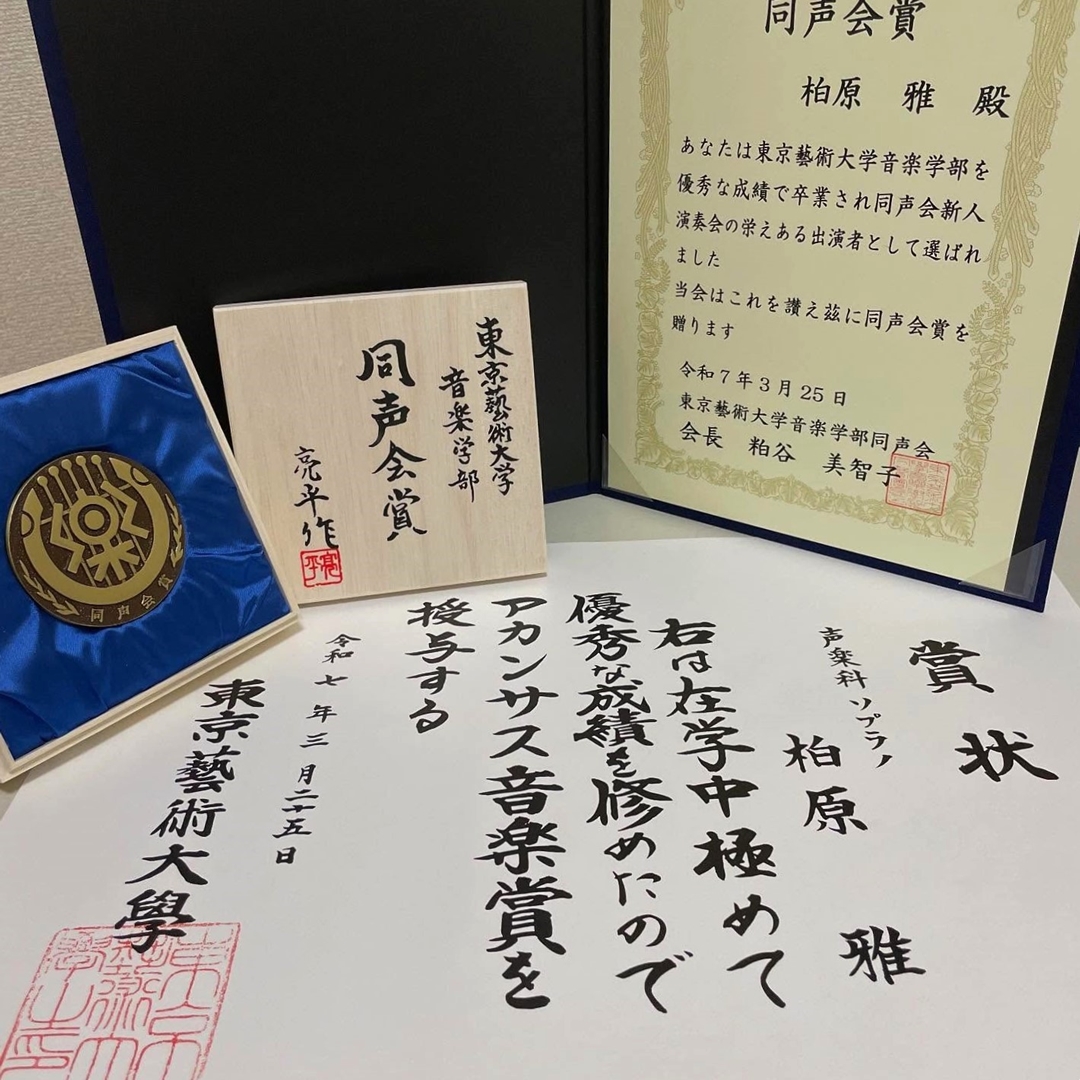 同声会賞
柏原 雅 殿
あなたは東京藝術大学音楽学部を
優秀な成績で卒業され同声会新人
演奏会の栄えある出演者として選ばれ
ました
当会はこれを讃え茲に同声会賞を
贈ります
令和7年3月25日
東京藝術大学音楽学部同声会
会長 粕谷 美智子
東京藝術大学
音楽学部
同声会賞
亮平作
亮平
同声会賞
賞状
声楽科 ソプラノ
柏原 雅
右は在学中極めて
優秀な成績を修めたので
アカンサス音楽賞を
授与する
令和七年三月二十五日
東京藝術大學